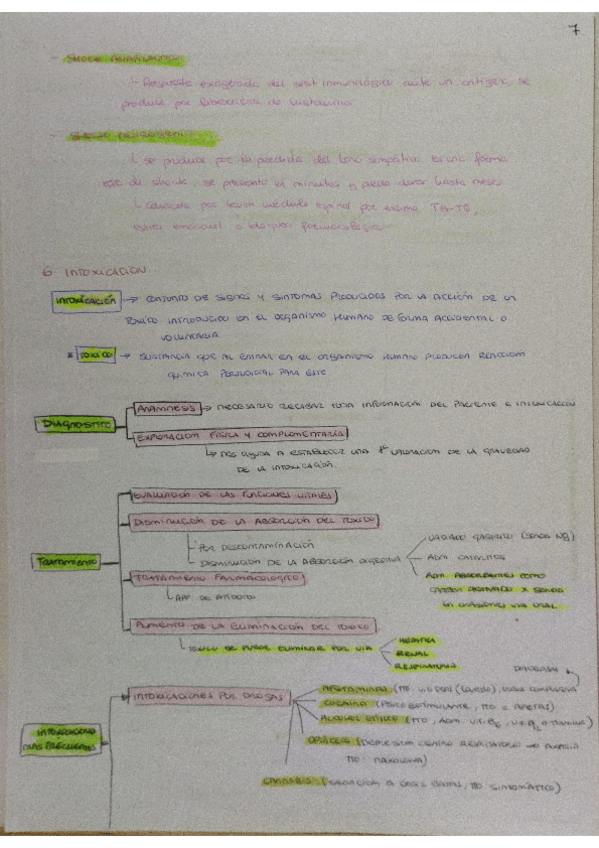 7
- SHOCK ANAFILACTICO
Respuesta exagerada del sist inmunológico ante un antígeno, se
produce por liberación de histamina
- SHOCK NEUROGENICO
se produce por la perdida del tono simpático es una forma
de shock, se presenta en minutos y puede durar hasta meses
causada por lesion médula espinal por encima T4-T6,
estres emocional o bloqueo farmacológico
6. INTOXICACIÓN
INTOXICACIÓN → CONJUNTO DE SIGNOS Y SINTOMAS PRODUCIDOS POR LA ACCIÓN DE UN
TOXICO INTRODUCIDO EN EL ORGANISMO HUMANO DE FORMA ACCIDENTAL O
VOLUNTARIA
* TOXICO → SUSTANCIA QUE AL ENTRAR EN EL ORGANISMO HUMANO PRODUCEN REACCION
QUIMICA PERJUDICIAL PARA ESTE
DIAGNOSTICO
ANAMNESIS → NECESARIO RECABAR TODA INFORMACIÓN DEL PACIENTE E INTOXICACION
EXPLORACION FISICA Y COMPLEMENTARIA
NOS AYUDA A ESTABLECER UNA 1ª VALORACION DE LA GRAVEDAD
DE LA INTOXICACIÓN.
TRATAMIENTO
EVALUACION DE LAS FUNCIONES VITALES
DISMINUCION DE LA ABSORCION DEL TOXICO
POR DESCONTAMINACIÓN
DISMINUCION DE LA ABSORCIÓN DIGESTIVA
LAVADO GASTRICO (SONDA NG)
ADM. CATARTICOS
ADM. ABSORBENTES COMO
CARBON ACTIVADO X SONDA
EN OCASIONES VIA ORAL
TRATAMIENTO FARMACOLOGICO
APP. DE ANTIDOTO
AUMENTO DE LA ELIMINACIÓN DEL TOXICO
TOXICO SE PUEDE ELIMINAR POR VIA
HEPATICA
RENAL
RESPIRATORIA
INTOXICACIONES
MAS FRECUENTES
INTOXICACIONES POR DROGAS
DIAZEPAM
ANFETAMINAS (TTO:
COCAINA (PSICOESTIMULANTE, TTO = ANFETAS)
ALCOHOL ETILICO (TTO, ADM. VIT. B6, TIAMINA)
OPIACEOS (DEPRESION CENTRO RESPIRATORIO → APNEA
TTO: NALOXONA)
CANNABIS (TTO SINTOMÁTICO)